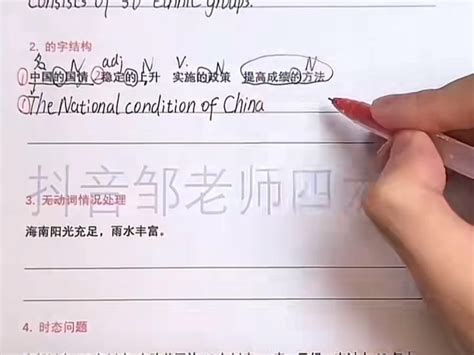 consists of 56 ethnic groups.
2. 的字结构
名 N adj N V. N N
①中国的国情 ②稳定的上升 实施的政策 提高成绩的方法
①The National condition of China
抖音邹老师四
3. 无动词情况处理
海南阳光充足，雨水丰富。
4. 时态问题